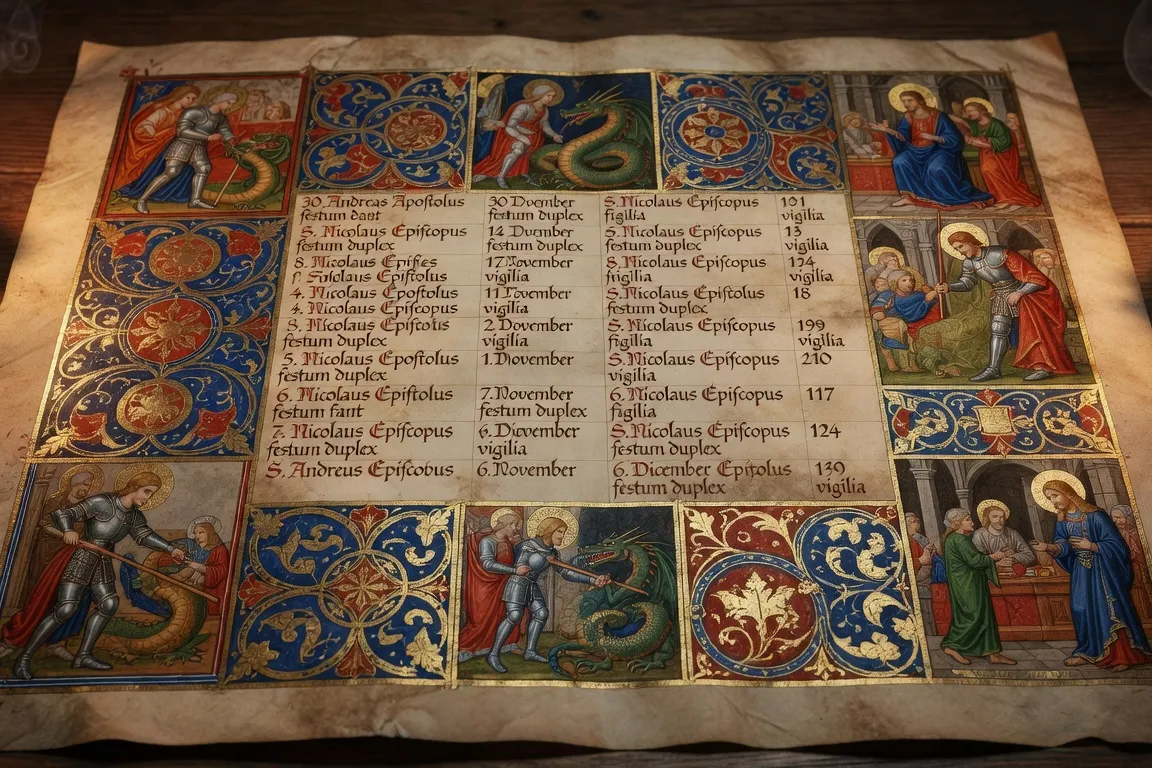 30. Andreas Apostolus 30 Dvember S. Nicolaus Epifcopus 101
festum dant festum duplex figilia vigilia
S. Nicolaus Epifcopus 14 Dumber S. Nicolaus Epifcopus 13
festum duplex festum duplex festum duplex vigilia
8. Nicolaus Epiftes 17. November 8. Nicolaus Epifcopus 124
Epftolus vigilia figilia vigilia
4. Nicolaus Epoftolus 11 S. Nicolaus Epiftolus 18
4. Nicolaus Epifcopus vigilia festum duplex
8. Nicolaus Epifcotus 2. Dovember S. Nicolaus Epifcopus 199
festum duplex vigilia figilia vigilia
5. Nicolaus Epoftolus 1. Dovember S. Nicolaus Epifcopus 210
festum duplex vigilia
6. Nicolaus Epiftolus 7. November 6. Nicolaus Epifcopus 117
festum fant festum duplex figilia
7. Nicolaus Epifcopus 6. Dicvember S. Nicolaus Epifcopus 124
festum duplex vigilia festum duplex
S. Andreus Epifcobus 6. November 6. Dicember Epitolus 139
festum duplex vigilia